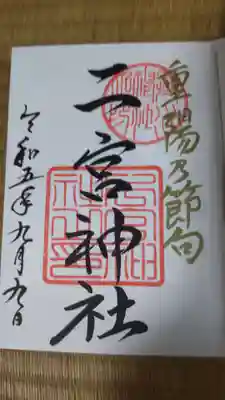 重陽乃節句
二宮神社
令和五年九月九日